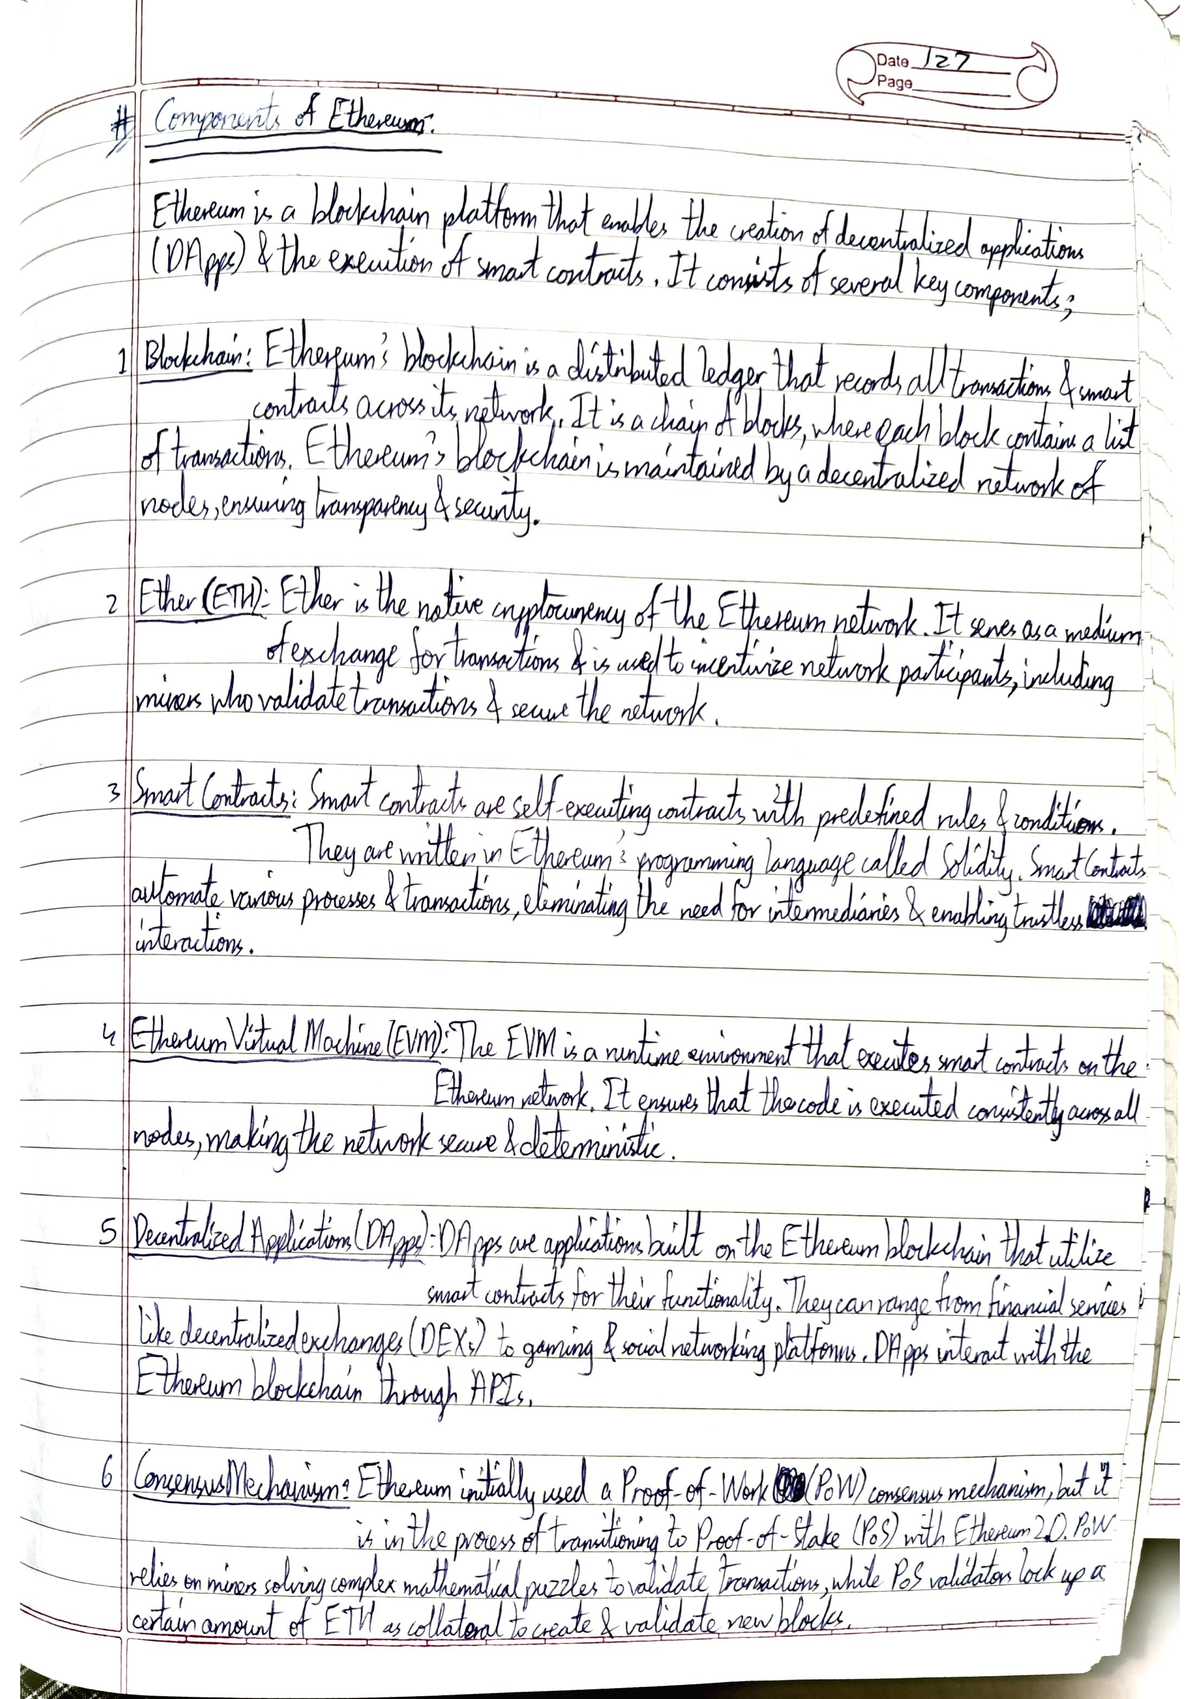 Date 127
Page
# Components of Ethereum:
Ethereum is a blockchain platform that enables the creation of decentralized applications
(DApps) & the execution of smart contracts. It consists of several key components;
1 Blockchain: Ethereum's blockchain is a distributed ledger that records all transactions & smart
contracts across its network. It is a chain of blocks, where each block contains a list
of transactions. Ethereum's blockchain is maintained by a decentralized network of
nodes, ensuring transparency & security.
2 Ether (ETH): Ether is the native cryptocurrency of the Ethereum network. It serves as a medium
of exchange for transactions & is used to incentivize network participants, including
miners who validate transactions & secure the network.
3 Smart Contracts: Smart contracts are self-executing contracts with predefined rules & conditions.
They are written in Ethereum's programming language called Solidity. Smart Contracts
automate various processes & transactions, eliminating the need for intermediaries & enabling trustless
interactions.
4 Ethereum Virtual Machine (EVM): The EVM is a runtime environment that executes smart contracts on the
Ethereum network. It ensures that the code is executed consistently across all
nodes, making the network secure & deterministic.
5 Decentralized Applications (DApps): DApps are applications built on the Ethereum blockchain that utilize
smart contracts for their functionality. They can range from financial services
like decentralized exchanges (DEXs) to gaming & social networking platforms. DApps interact with the
Ethereum blockchain through APIs.
6 Consensus Mechanism: Ethereum initially used a Proof-of-Work (PoW) consensus mechanism, but it
is in the process of transitioning to Proof-of-Stake (PoS) with Ethereum 2.0. PoW
relies on miners solving complex mathematical puzzles to validate transactions, while PoS validators lock up a
certain amount of ETH as collateral to create & validate new blocks.